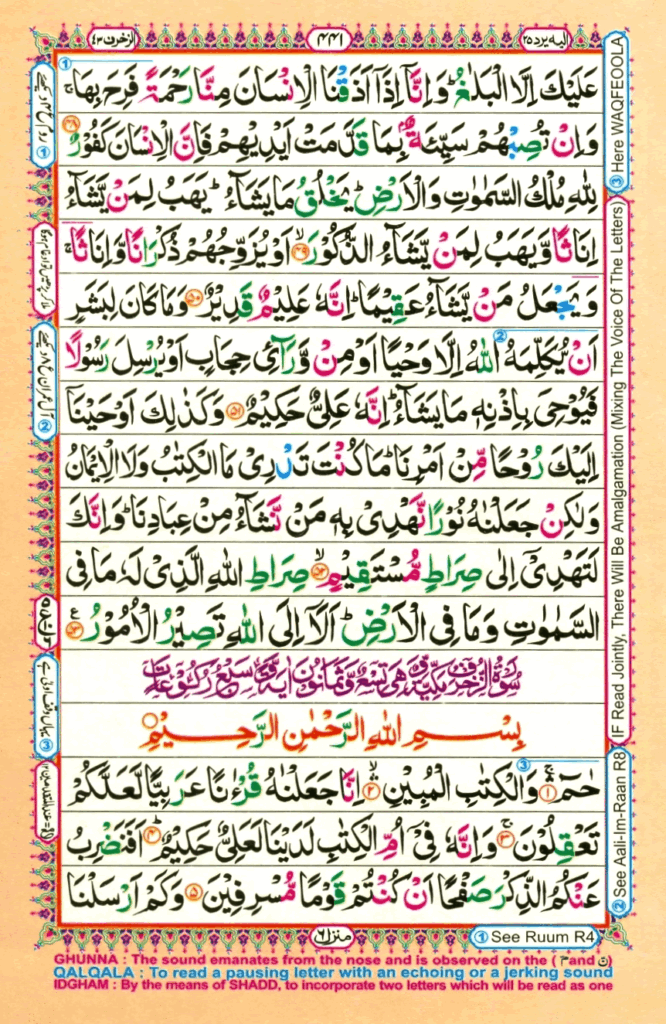 الزخرف ٤٣
٤٤١
اليه يرد ٢٥
عَلَيْكَ اِلَّا الْبَلٰغُ ؕ وَاِنَّاۤ اِذَاۤ اَذَقْنَا الْاِنْسَانَ مِنَّا رَحْمَةً فَرِحَ بِهَا ۚ
وَاِنْ تُصِبْهُمْ سَيِّئَةٌۢ بِمَا قَدَّمَتْ اَيْدِيْهِمْ فَاِنَّ الْاِنْسَانَ كَفُوْرٌ ﴿۴۸﴾
لِلّٰهِ مُلْكُ السَّمٰوٰتِ وَالْاَرْضِ ؕ يَخْلُقُ مَا يَشَآءُ ؕ يَهَبُ لِمَنْ يَّشَآءُ
اِنَاثًا وَّيَهَبُ لِمَنْ يَّشَآءُ الذُّكُوْرَ ﴿۴۹﴾ اَوْ يُزَوِّجُهُمْ ذُكْرَانًا وَّاِنَاثًا ۚ
وَيَجْعَلُ مَنْ يَّشَآءُ عَقِيْمًا ؕ اِنَّهٗ عَلِيْمٌ قَدِيْرٌ ﴿۵۰﴾ وَمَا كَانَ لِبَشَرٍ
اَنْ يُّكَلِّمَهُ اللّٰهُ اِلَّا وَحْيًا اَوْ مِنْ وَّرَآئِ حِجَابٍ اَوْ يُرْسِلَ رَسُوْلًا
فَيُوْحِيَ بِاِذْنِهٖ مَا يَشَآءُ ؕ اِنَّهٗ عَلِيٌّ حَكِيْمٌ ﴿۵۱﴾ وَكَذٰلِكَ اَوْحَيْنَاۤ
اِلَيْكَ رُوْحًا مِّنْ اَمْرِنَا ؕ مَا كُنْتَ تَدْرِيْ مَا الْكِتٰبُ وَلَا الْاِيْمَانُ
وَلٰكِنْ جَعَلْنٰهُ نُوْرًا نَّهْدِيْ بِهٖ مَنْ نَّشَآءُ مِنْ عِبَادِنَا ؕ وَاِنَّكَ
لَتَهْدِيْۤ اِلٰى صِرَاطٍ مُّسْتَقِيْمٍ ﴿۵۲﴾ صِرَاطِ اللّٰهِ الَّذِيْ لَهٗ مَا فِي
السَّمٰوٰتِ وَمَا فِي الْاَرْضِ ؕ اَلَاۤ اِلَى اللّٰهِ تَصِيْرُ الْاُمُوْرُ ﴿۵۳﴾
سُوْرَةُ الزُّخْرُفِ مَكِّيَّةٌ وَّهِيَ تِسْعٌ وَّثَمَانُوْنَ اٰيَةً وَّسَبْعُ رُكُوْعَاتٍ
بِسْمِ اللّٰهِ الرَّحْمٰنِ الرَّحِيْمِ
حٰمٓ ﴿۱﴾ وَالْكِتٰبِ الْمُبِيْنِ ﴿۲﴾ اِنَّا جَعَلْنٰهُ قُرْءٰنًا عَرَبِيًّا لَّعَلَّكُمْ
تَعْقِلُوْنَ ﴿۳﴾ وَاِنَّهٗ فِيْۤ اُمِّ الْكِتٰبِ لَدَيْنَا لَعَلِيٌّ حَكِيْمٌ ﴿۴﴾ اَفَنَضْرِبُ
عَنْكُمُ الذِّكْرَ صَفْحًا اَنْ كُنْتُمْ قَوْمًا مُّسْرِفِيْنَ ﴿۵﴾ وَكَمْ اَرْسَلْنَا
منزل ٦
① See Ruum R4
② See Aali-Im-Raan R8
IF Read Jointly, There Will Be Amalgamation (Mixing The Voice Of The Letters)
③ Here WAQFEOOLA
GHUNNA : The sound emanates from the nose and is observed on the ( م and ن )
QALQALA : To read a pausing letter with an echoing or a jerking sound
IDGHAM : By the means of SHADD, to incorporate two letters which will be read as one